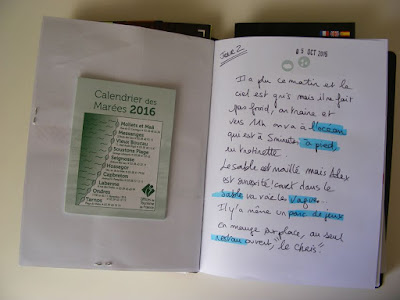 Calendrier des
Marées 2016
Moliets et Maâ
Messanges
Vieux Boucau
Soustons Plage
Seignosse
Hossegor
Capbreton
Labenne
Ondres
Tarnos
Jour 2
05 OCT 2016
Il a plu ce matin et le
ciel est gris mais il ne fait
pas froid, on traine et
vers 11h on va à l'océan
qui est à 5 minutes à pied,
en trottinette.
Le sable est mouillé mais Alex
est surexcité! courir dans le
sable va voir les vagues...
Il y a même un parc de jeux
on mange sur place, au seul
restau ouvert, "le Chris".